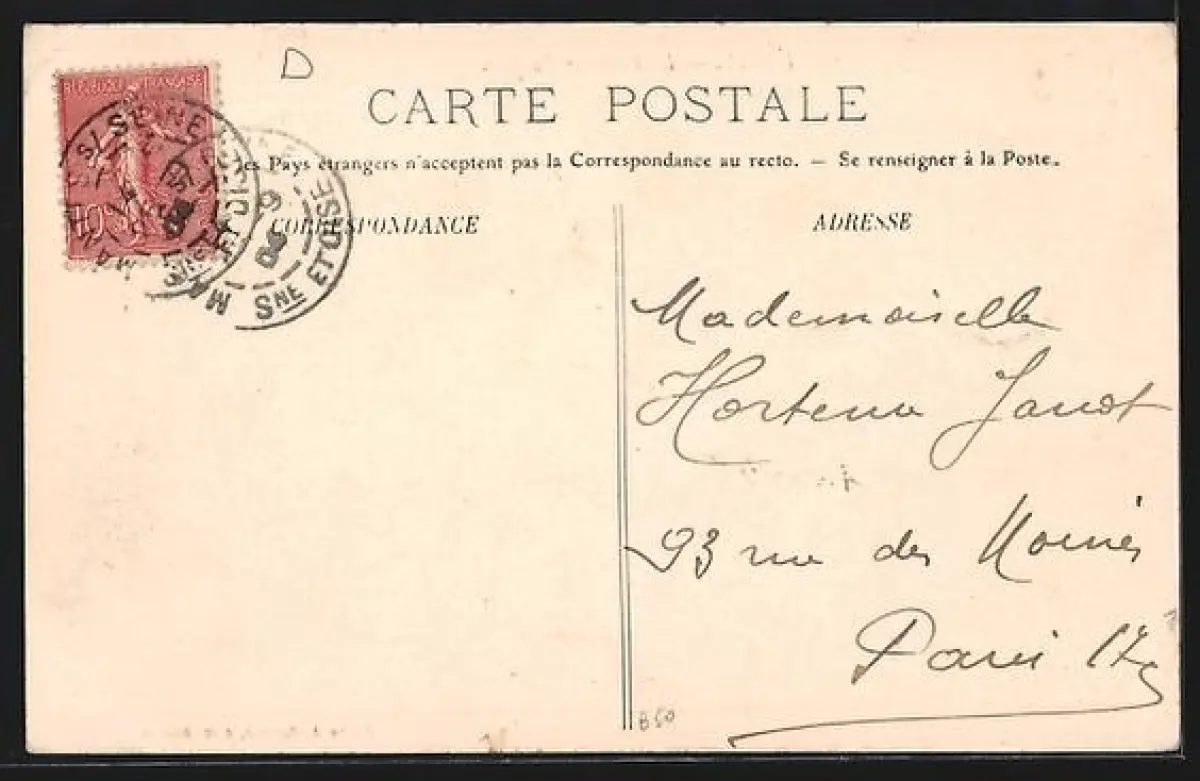 D
RÉPUBLIQUE FRANÇAISE
10
CARTE POSTALE
les Pays étrangers n'acceptent pas la Correspondance au recto. — Se renseigner à la Poste.
CORRESPONDANCE
ADRESSE
S/SEINE
SNE ET OISE
Mademoiselle
Hortense Janot
93 rue des Moines
Paris 17e
B50